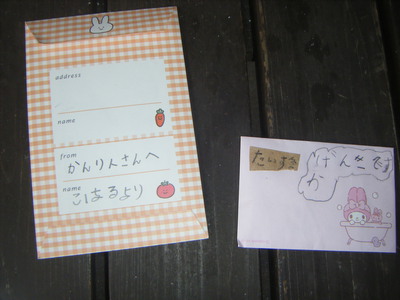 address
name
from
かんりんさんへ
name
こはるより
げんきです
か